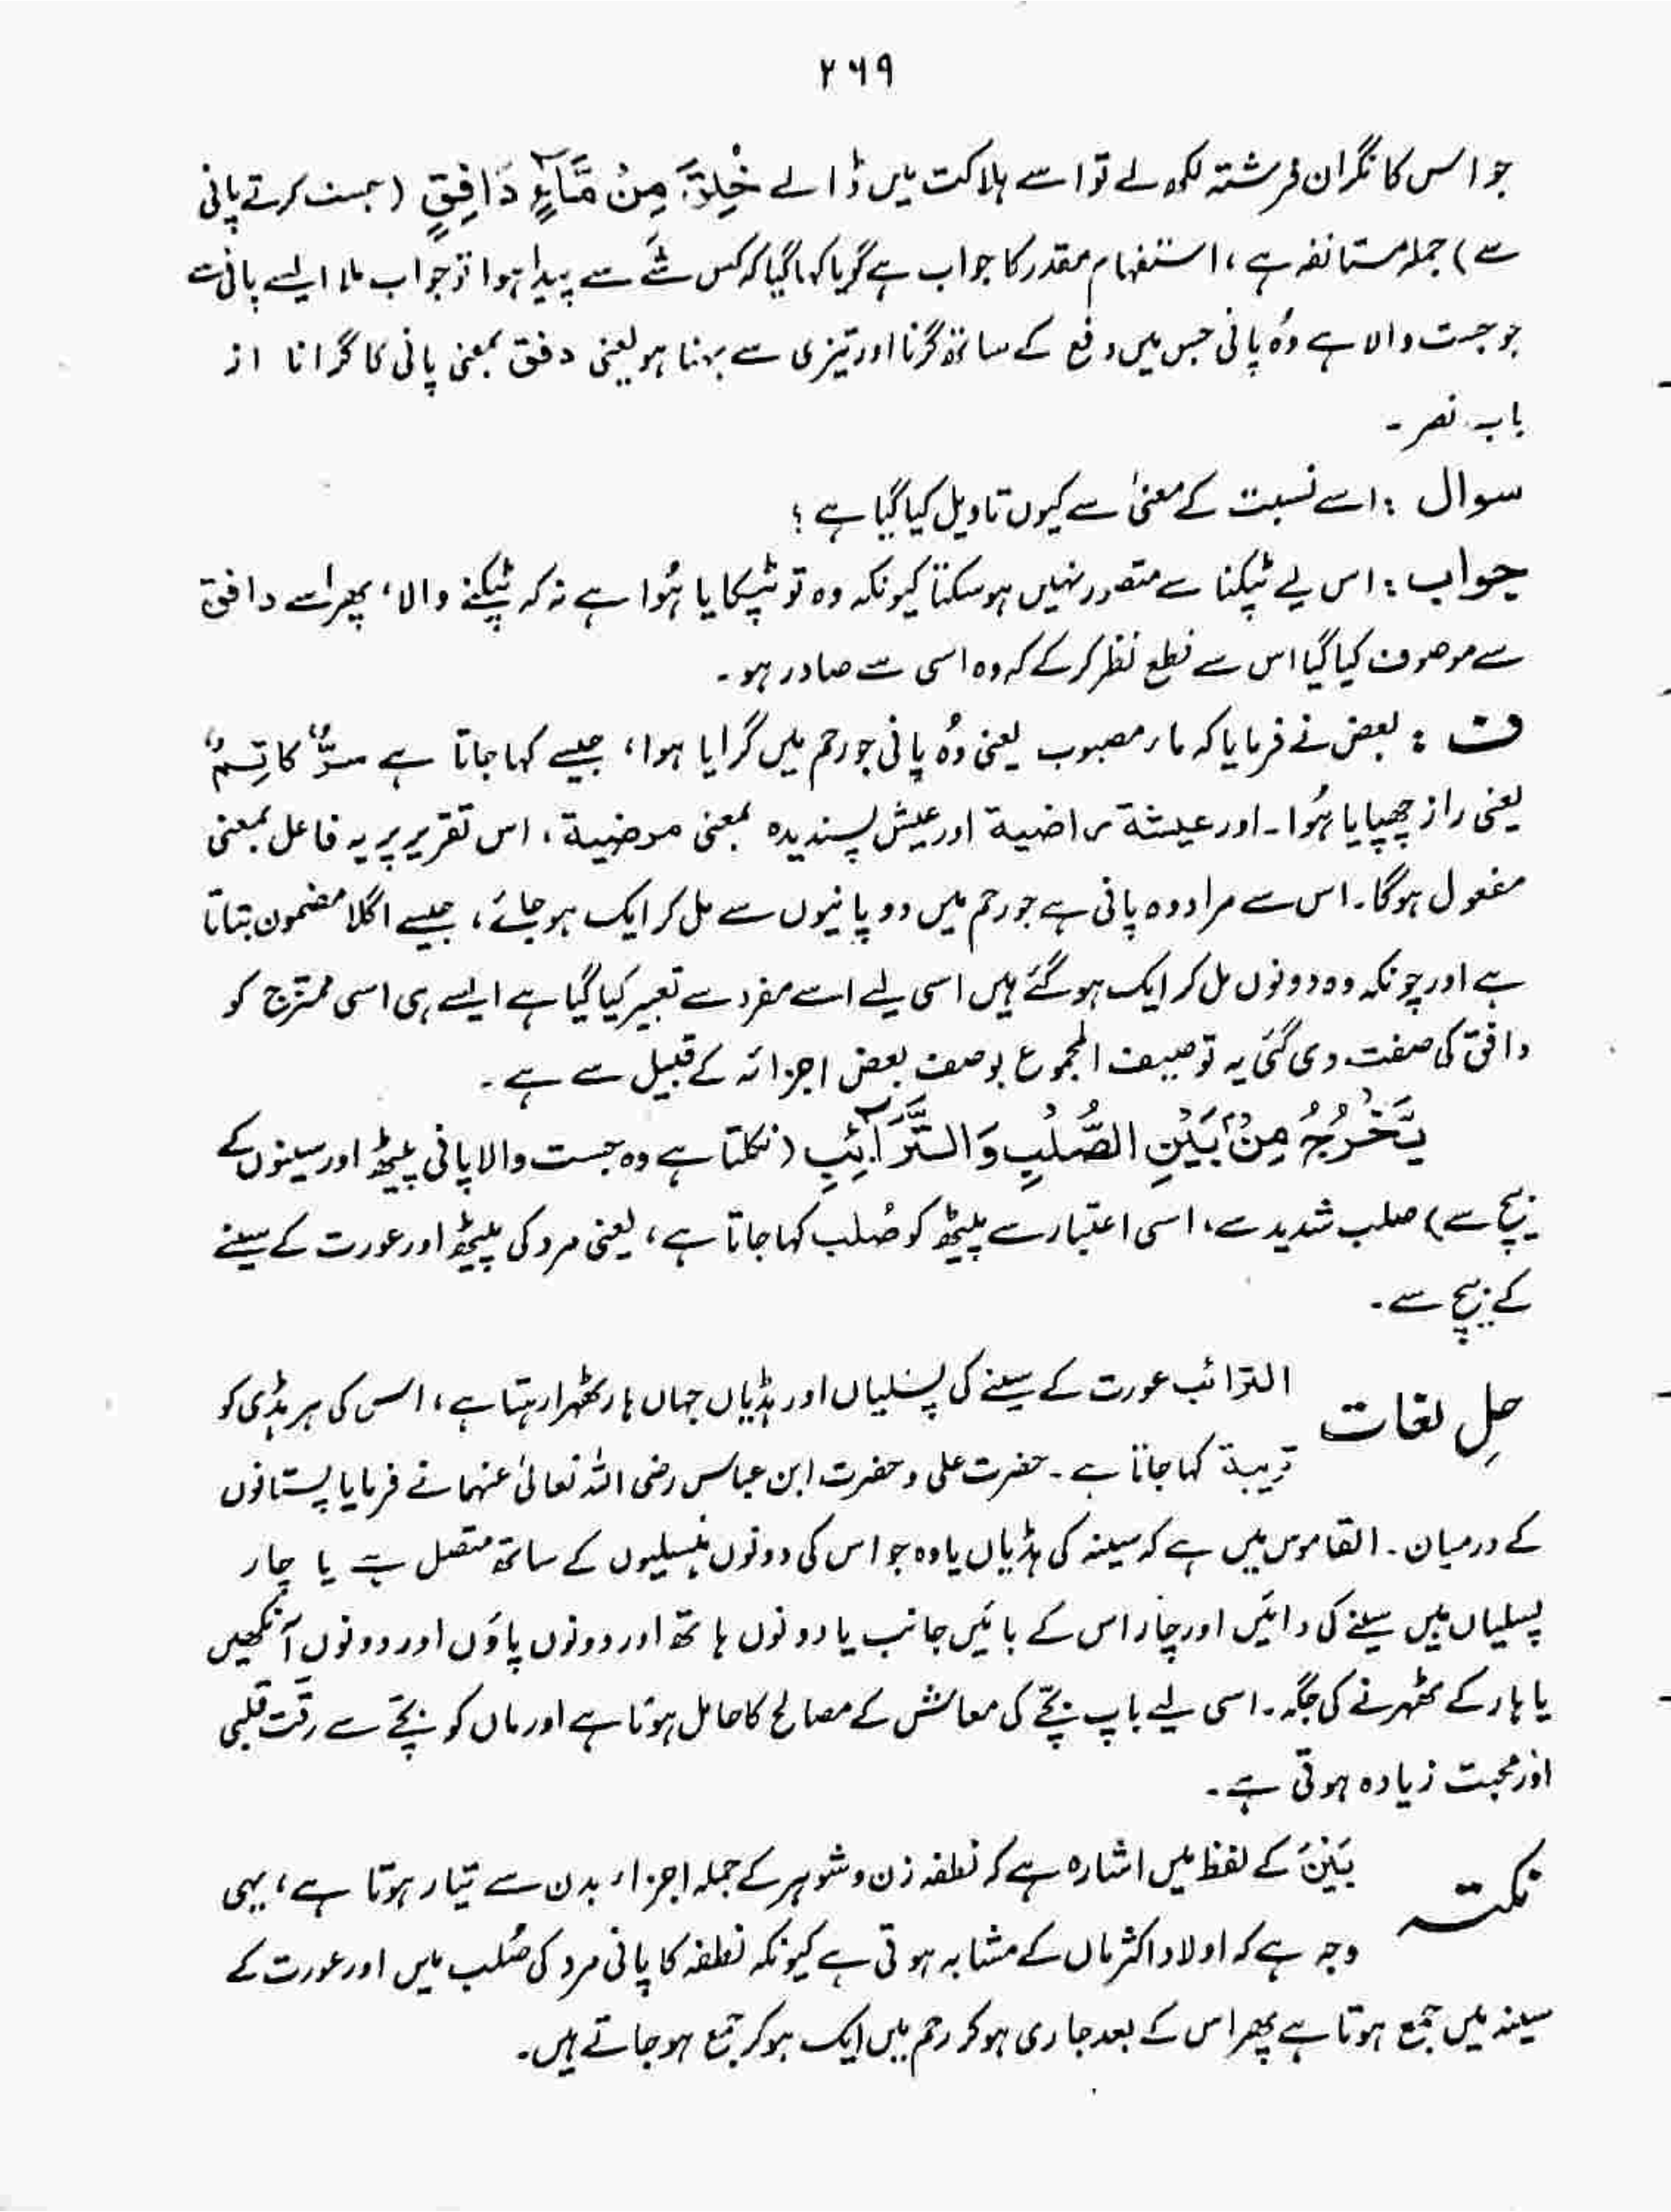 ۲۶۹
جو اس کا نگران فرشتہ لکھ لے تو اسے ہلاکت میں ڈالے خُلِقَ مِنْ مَّآءٍ دَافِقٍ (جست کرتے پانی
سے) جملہ مستانفہ ہے، استفہام مقدر کا جواب ہے گویا کہا گیا کہ کس شَے سے پیدا ہوا تو جواب ملا ایسے پانی سے
جو جست والا ہے وُہ پانی جس میں دفع کے ساتھ گرنا اور تیزی سے بہنا ہو یعنی دفق بمعنی پانی کا گرانا از
باب نصر۔
سوال : اسے نسبت کے معنیٰ سے کیوں تاویل کیا گیا ہے ؟
جواب : اس لیے ٹپکنا سے متصور نہیں ہو سکتا کیونکہ وہ تو ٹپکایا ہُوا ہے نہ کہ ٹپکنے والا، پھر اسے دافق
سے موصوف کیا گیا اس سے قطع نظر کر کے کہ وہ اسی سے صادر ہو۔
ف : بعض نے فرمایا کہ ماء مصبوب یعنی وُہ پانی جو رحم میں گرایا ہوا، جیسے کہا جاتا ہے سرٌّ کاتِمٌ
یعنی راز چھپایا ہُوا۔ اور عیشة راضیة اور عیش پسندیدہ بمعنی مرضیة، اس تقریر پر یہ فاعل بمعنی
مفعول ہوگا۔ اس سے مراد وہ پانی ہے جو رحم میں دو پانیوں سے مل کر ایک ہو جائے، جیسے اگلا مضمون بتاتا
ہے اور چونکہ وہ دونوں مل کر ایک ہو گئے ہیں اسی لیے اسے مفرد سے تعبیر کیا گیا ہے ایسے ہی اسی ممتزج کو
دافق کی صفت دی گئی یہ توصیف المجموع بوصف بعض اجزائہ کے قبیل سے ہے۔
یَّخْرُجُ مِنْۢ بَیْنِ الصُّلْبِ وَالتَّرَآئِبِ (نکلتا ہے وہ جست والا پانی پیٹھ اور سینوں کے
بیچ سے) صلب شدید سے، اسی اعتبار سے پیٹھ کو صُلب کہا جاتا ہے، یعنی مرد کی پیٹھ اور عورت کے سینے
کے بیچ سے۔
حلِ لغات الترائب عورت کے سینے کی پسلیاں اور ہڈیاں جہاں ہار ٹھہرا رہتا ہے، اس کی ہر ہڈی کو
تریبة کہا جاتا ہے۔ حضرت علی و حضرت ابن عباس رضی اللہ تعالیٰ عنہما نے فرمایا پستانوں
کے درمیان۔ القاموس میں ہے کہ سینہ کی ہڈیاں یا وہ جو اس کی دونوں ہنسلیوں کے ساتھ متصل ہے یا چار
پسلیاں ہیں سینے کی دائیں اور چار اس کے بائیں جانب یا دونوں ہاتھ اور دونوں پاؤں اور دونوں آنکھیں
یا ہار کے ٹھہرنے کی جگہ۔ اسی لیے باپ بچّے کی معاش کے مصالح کا حامل ہوتا ہے اور ماں کو بچّے سے رقّت قلبی
اور محبت زیادہ ہوتی ہے۔
نکتہ بَیْنَ کے لفظ میں اشارہ ہے کہ نطفہ زن و شوہر کے جملہ اجزاء بدن سے تیار ہوتا ہے، یہی
وجہ ہے کہ اولاد اکثر ماں کے مشابہ ہوتی ہے کیونکہ نطفہ کا پانی مرد کی صُلب میں اور عورت کے
سینہ میں جمع ہوتا ہے پھر اس کے بعد جاری ہو کر رحم میں ایک ہو کر جمع ہو جاتے ہیں۔